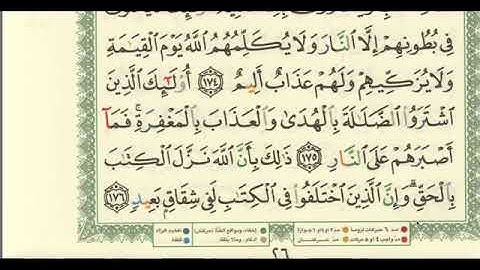 فِى بُطُونِهِمْ إِلَّا ٱلنَّارَ وَلَا يُكَلِّمُهُمُ ٱللَّهُ يَوْمَ ٱلْقِيَٰمَةِ
وَلَا يُزَكِّيهِمْ وَلَهُمْ عَذَابٌ أَلِيمٌ ١٧٤ أُو۟لَٰٓئِكَ ٱلَّذِينَ
ٱشْتَرَوُا۟ ٱلضَّلَٰلَةَ بِٱلْهُدَىٰ وَٱلْعَذَابَ بِٱلْمَغْفِرَةِ ۚ فَمَآ
أَصْبَرَهُمْ عَلَى ٱلنَّارِ ١٧٥ ذَٰلِكَ بِأَنَّ ٱللَّهَ نَزَّلَ ٱلْكِتَٰبَ
بِٱلْحَقِّ ۗ وَإِنَّ ٱلَّذِينَ ٱخْتَلَفُوا۟ فِى ٱلْكِتَٰبِ لَفِى شِقَاقٍۭ بَعِيدٍ ١٧٦
٢٦